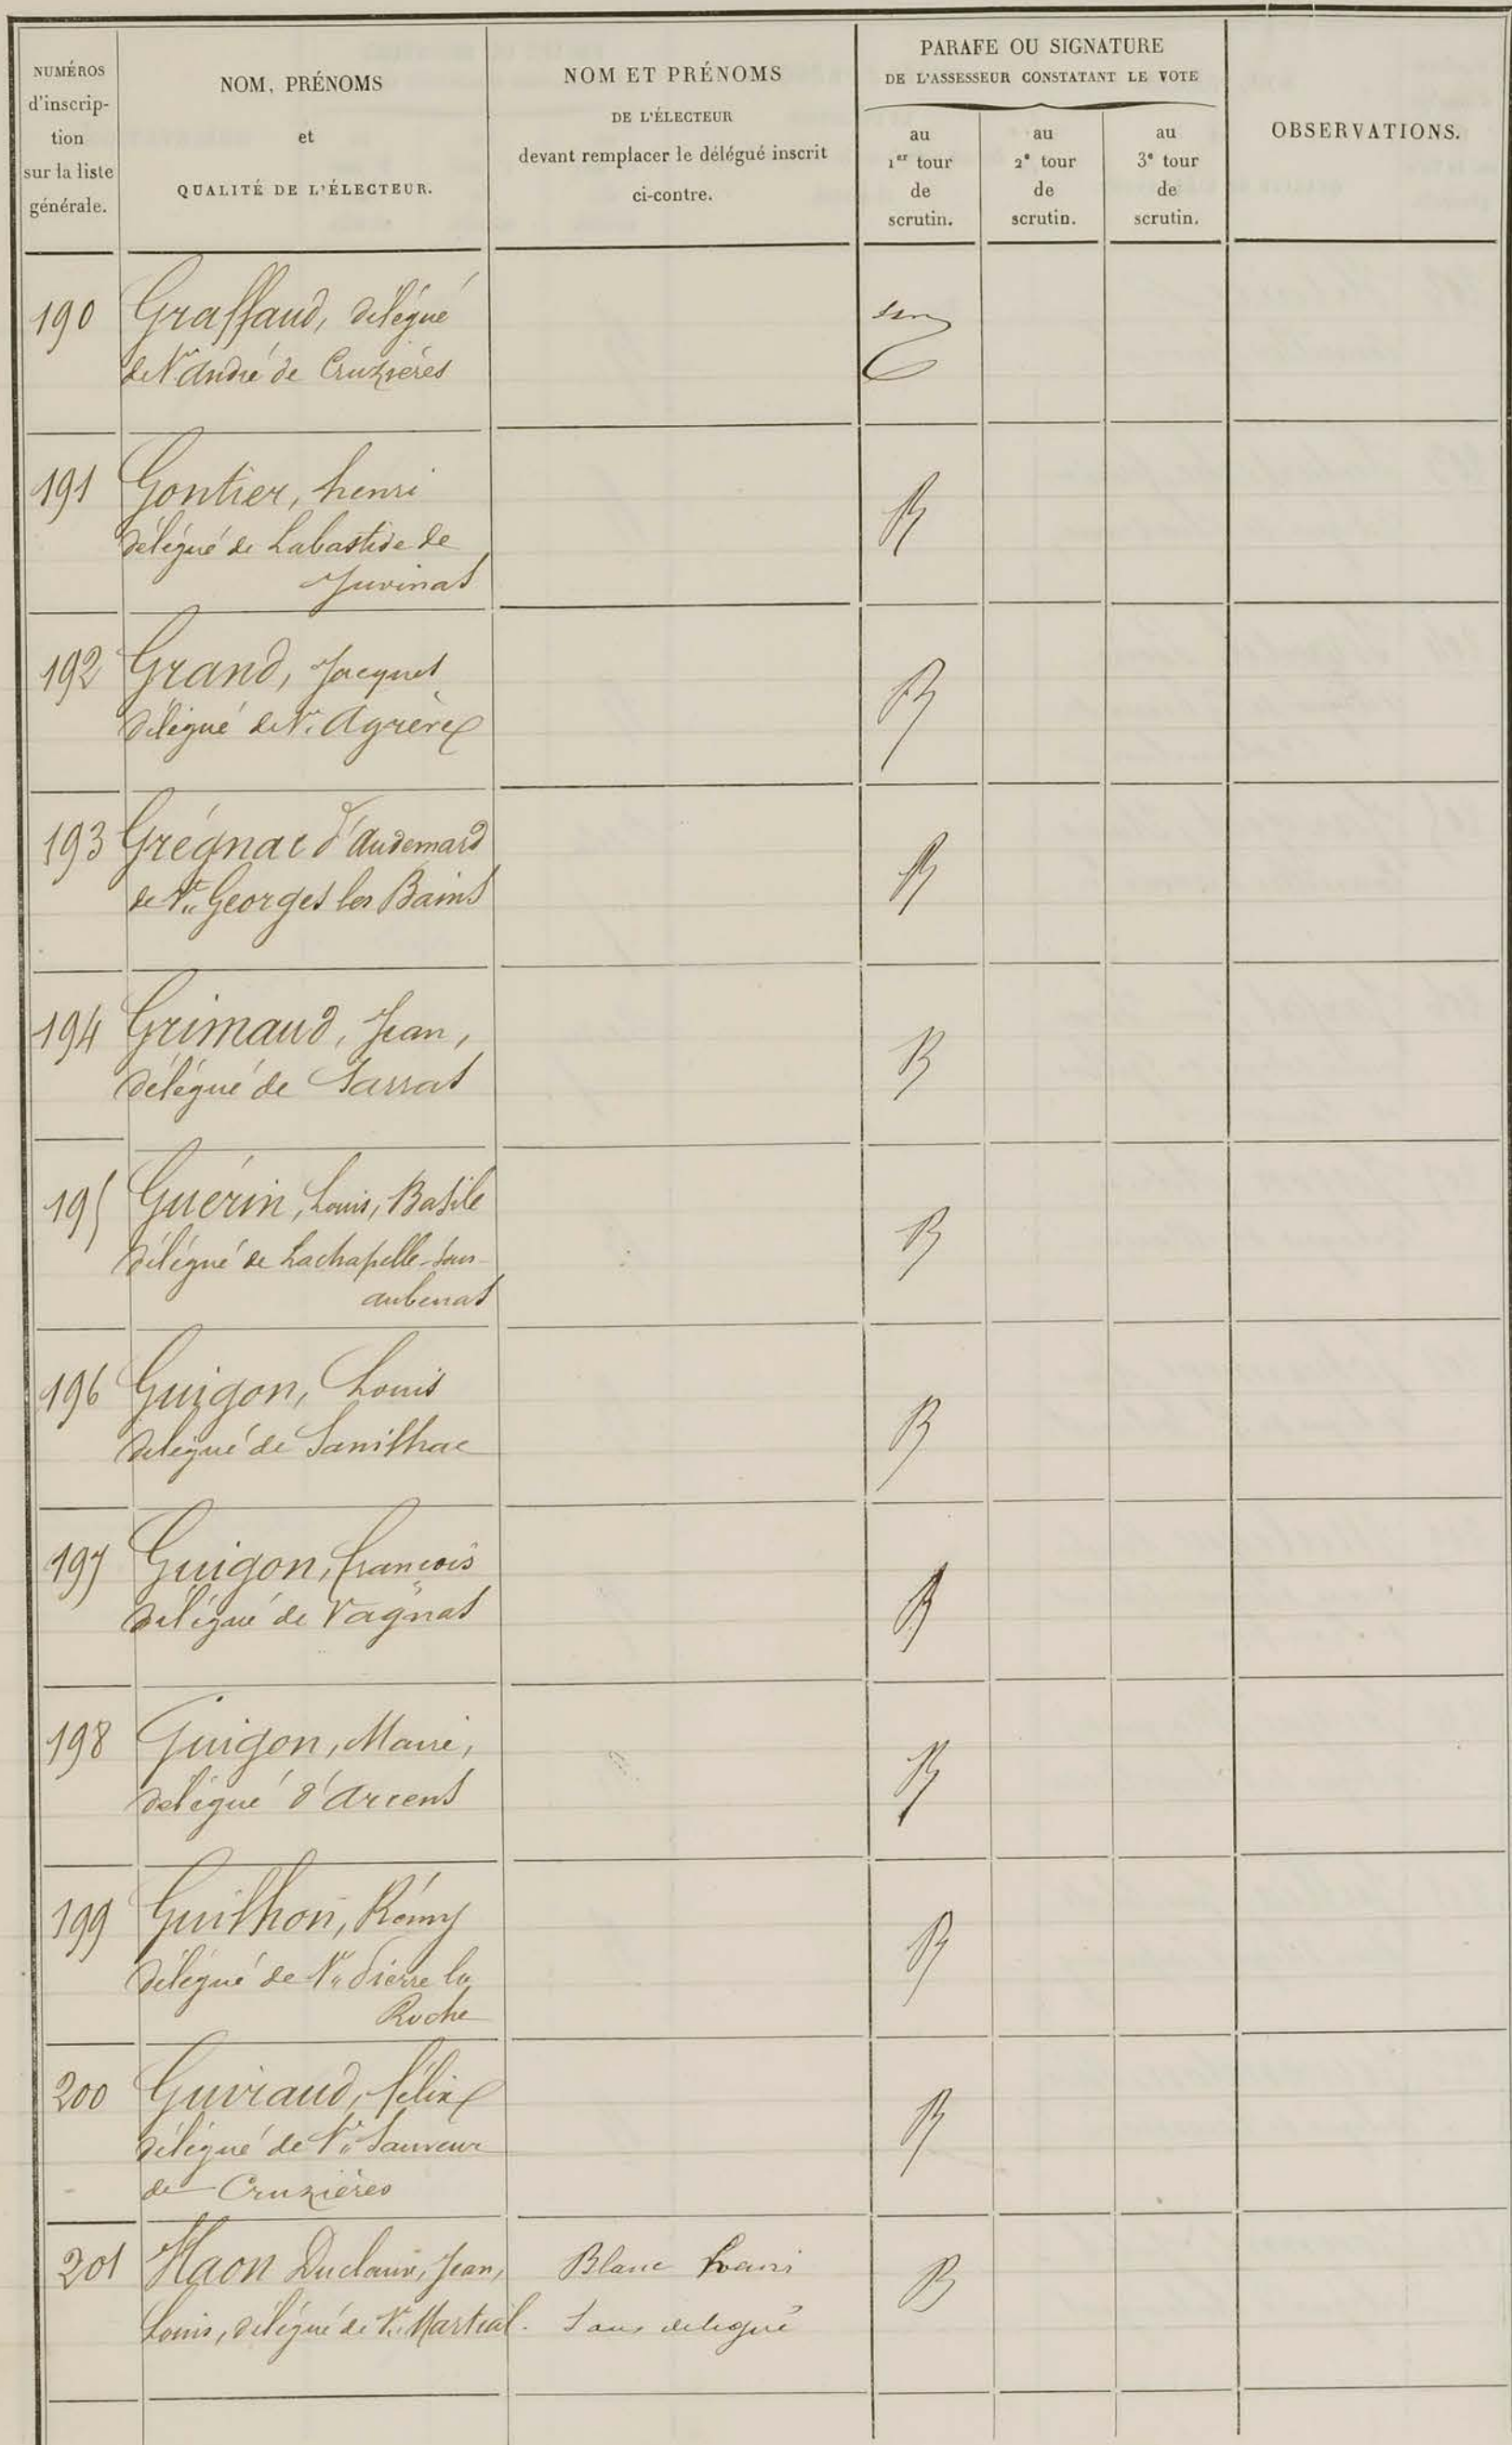 NUMÉROS
d'inscrip-
tion
sur la liste
générale.
NOM, PRÉNOMS
et
QUALITÉ DE L'ÉLECTEUR.
NOM ET PRÉNOMS
DE L'ÉLECTEUR
devant remplacer le délégué inscrit
ci-contre.
PARAFE OU SIGNATURE
DE L'ASSESSEUR CONSTATANT LE VOTE
au
1er tour
de
scrutin.
au
2e tour
de
scrutin.
au
3e tour
de
scrutin.
OBSERVATIONS.
190 Graffand, délégué
de St André de Cruzières
191 Gontier, henri
délégué de Labastide de
Juvinas
192 Grand, Jacques
délégué de St Agrève
193 Grégnac d'Audemard
de St Georges les Bains
194 Grimaud, Jean,
délégué de Sarras
195 Guérin, Louis, Basile
délégué de Lachapelle-sous-
aubenas
196 Guigon, Louis
délégué de Sanilhac
197 Guigon, françois
délégué de Vagnas
198 Guigon, Marie,
délégué d'Arcens
199 Guilhon, Rémy
délégué de St Pierre la
Roche
200 Guiraud, félix
délégué de St Sauveur
de Cruzières
201 Haon Duclaux, Jean, Blanc
Louis, délégué de St Martial. Sous délégué